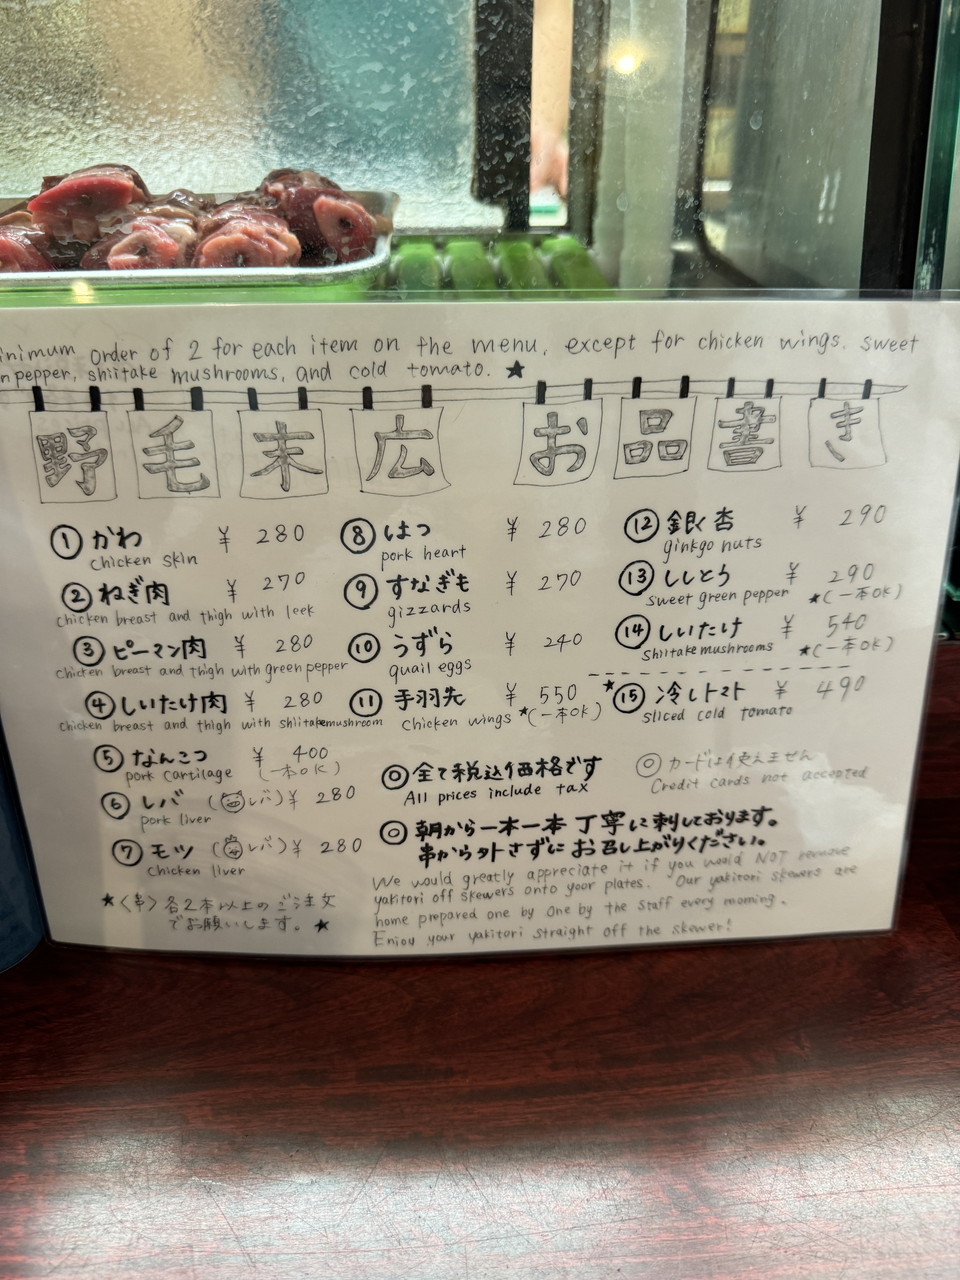 inimum order of 2 for each item on the menu, except for chicken wings, sweet
n pepper, shiitake mushrooms, and cold tomato. ★
野毛末広 お品書き
① かわ ¥ 280
chicken skin
② ねぎ肉 ¥ 270
chicken breast and thigh with leek
③ ピーマン肉 ¥ 280
chicken breast and thigh with green pepper
④ しいたけ肉 ¥ 280
chicken breast and thigh with shiitake mushroom
⑤ なんこつ ¥ 400
pork cartilage (一本OK)
⑥ レバ (レバ) ¥ 280
pork liver
⑦ モツ (レバ) ¥ 280
chicken liver
★〈串〉各2本以上のご注文
でお願いします。★
⑧ はつ ¥ 280
pork heart
⑨ すなぎも ¥ 270
gizzards
⑩ うずら ¥ 240
quail eggs
⑪ 手羽先 ¥ 550
chicken wings ★(一本OK)
⑫ 銀杏 ¥ 290
ginkgo nuts
⑬ ししとう ¥ 290
sweet green pepper ★(一本OK)
⑭ しいたけ ¥ 540
shiitake mushrooms ★(一本OK)
★⑮ 冷しトマト ¥ 490
sliced cold tomato
◎ 全て税込価格です
All prices include tax
◎ カードは使えません
Credit cards not accepted
◎ 朝から一本一本 丁寧に刺しております。
串から外さずに お召し上がりください。
We would greatly appreciate it if you would NOT remove
yakitori off skewers onto your plates. Our yakitori skewers are
home prepared one by one by the staff every morning.
Enjoy your yakitori straight off the skewer!